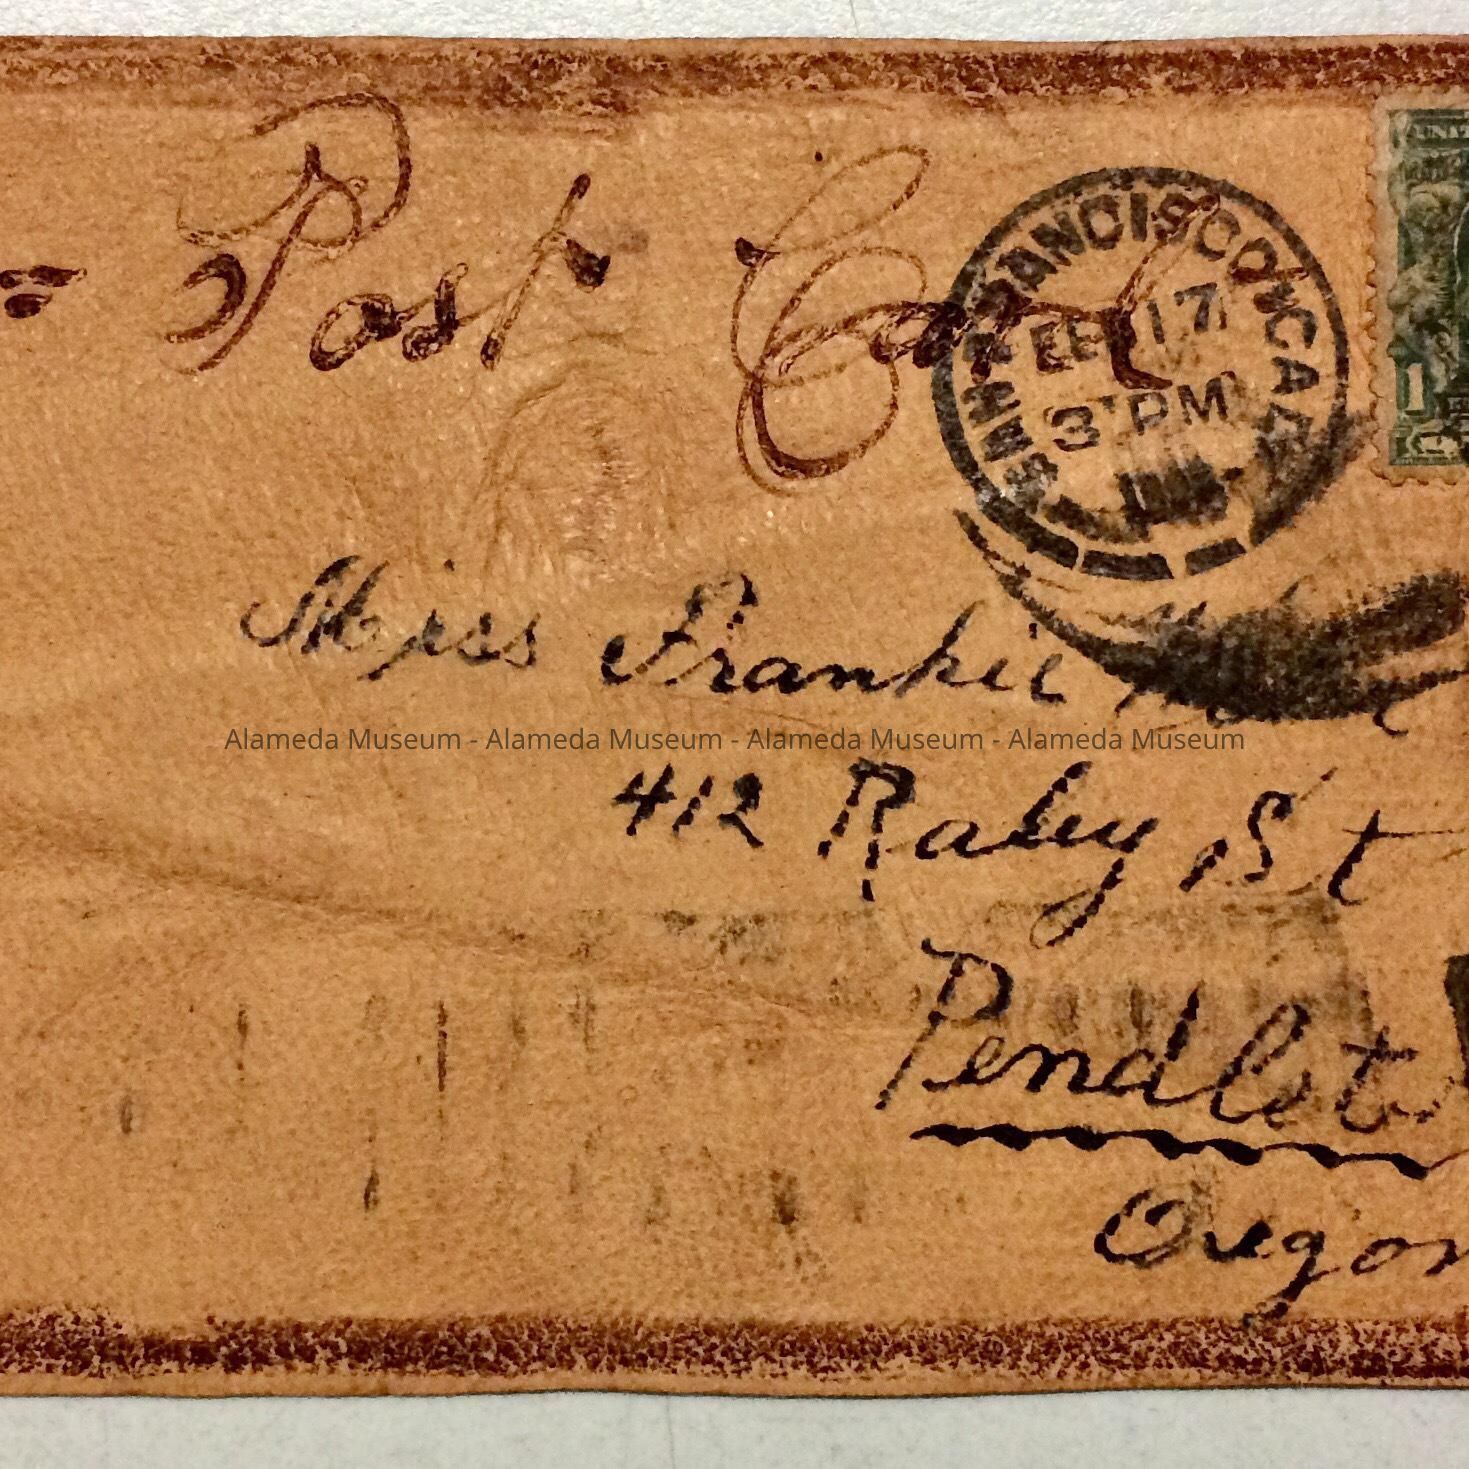 Post Card
SAN FRANCISCO, CAL.
FEB 17
3 PM
UNIT
1
Miss Frankie
Alameda Museum - Alameda Museum - Alameda Museum - Alameda Museum
412 Raley St
Pendleto
Oregon